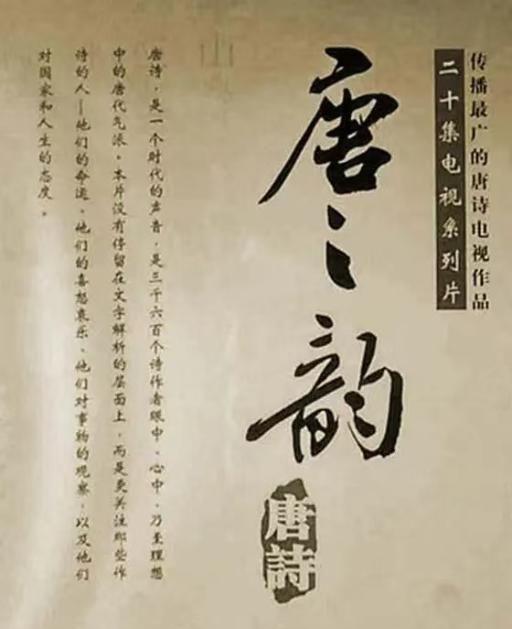 传播最广的唐诗电视作品
二十集电视系列片
唐之韵
唐詩
唐诗，是一个时代的声音，是三千六百个诗作者眼中、心中，乃至理想
中的唐代气派。本片没有停留在文字解析的层面上，而是更关注那些作
诗的人—他们的命运、他们的喜怒哀乐、他们对事物的观察，以及他们
对国家和人生的态度。
山